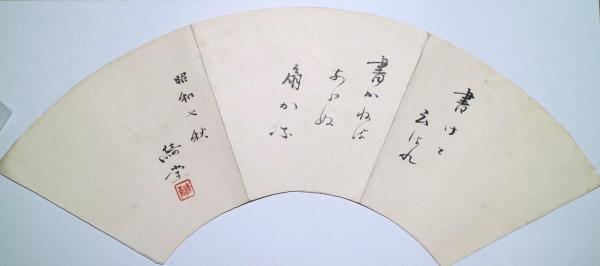 書けと
云はれ
書かねば
ならぬ
扇かな
昭和七秋
綺堂